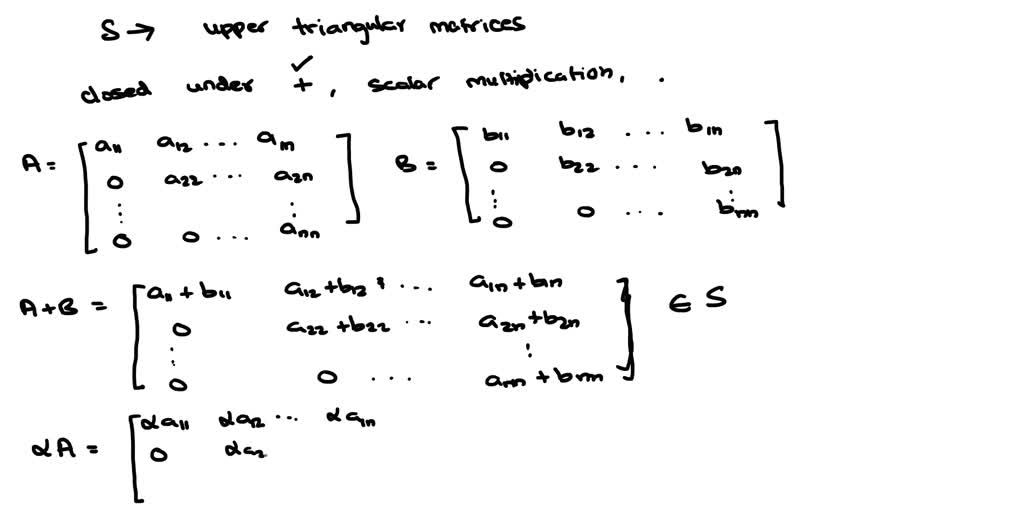 S → upper triangular matrices
✓
closed under +, scalar multiplication, .
A = [ a11 a12 ... a1n ] B = [ b11 b12 ... b1n ]
0 a22 ... a2n 0 b22 ... b2n
⋮ ⋮ ⋮ ⋮
0 0 ... ann 0 0 ... bnn
A+B = [ a11 + b11 a12+b12 ... a1n+b1n ] ∈ S
0 a22+b22 ... a2n+b2n
⋮ ⋮
0 0 ... ann + bnn
αA = [ αa11 αa12 ... αa1n
0 αa2